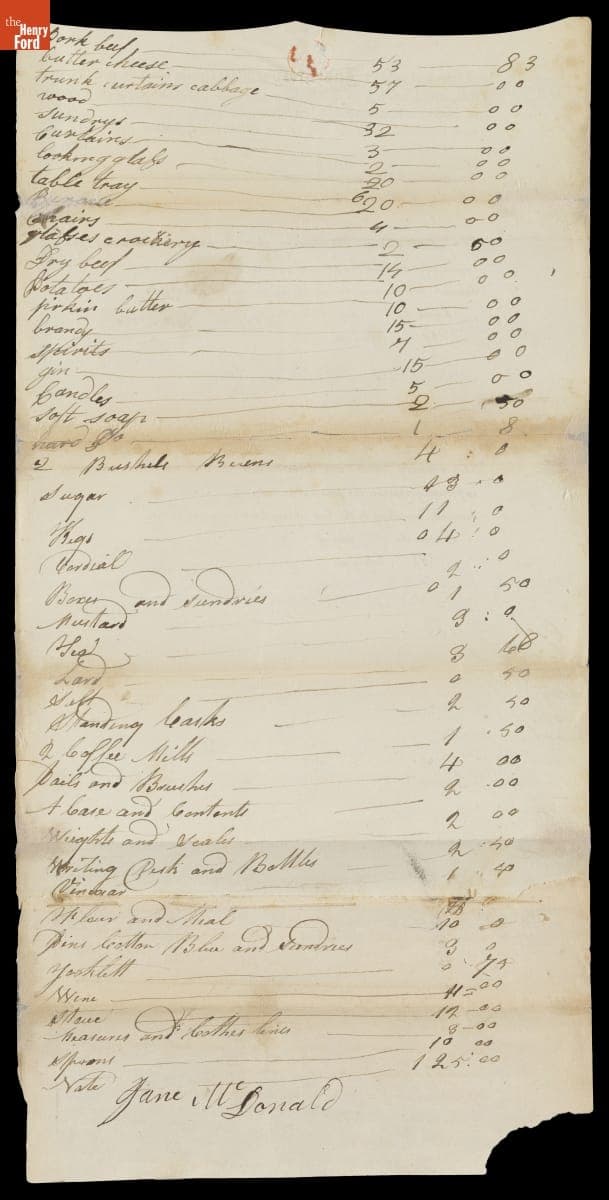 the Henry Ford
Pork beef 53 83
butter cheese 57 00
trunk curtains cabbage 5 00
wood 32 00
sundrys 3 00
Curtains 2 00
looking glass 20 00
table tray 20 00
4 00
Chairs 2 50
glasses crockery 14 00
Dry beef 10 00
Potatoes 10 00
firkin butter 15 00
brandy 7 00
spirits 15 00
gin 5 00
Candles 2 50
soft soap 1 8
hard Do 4 0
2 Bushels Beens 0
Sugar 11 0
Kegs 04 : 0
Cordial 2 : 0
Boxes and Sundries 0 50
Mustard 1
Tea 3 : 0
Lard 3 68
Salt 0 50
Standing Casks 2 50
2 Coffee Mills 1 50
Pails and Brushes 4 00
A Case and Contents 2 00
Weights and Scales 2 00
Writing Desk and Bottles 2 50
Vinegar 1 50
Flour and Meal 10 0
Pins Cotton Blue and Sundries 3 0
0 75
Wine 11 = 00
12 - 00
Measures and Cothes lines 8 - 00
Spoons 10 00
Note 125 : 00
Jane McDonald